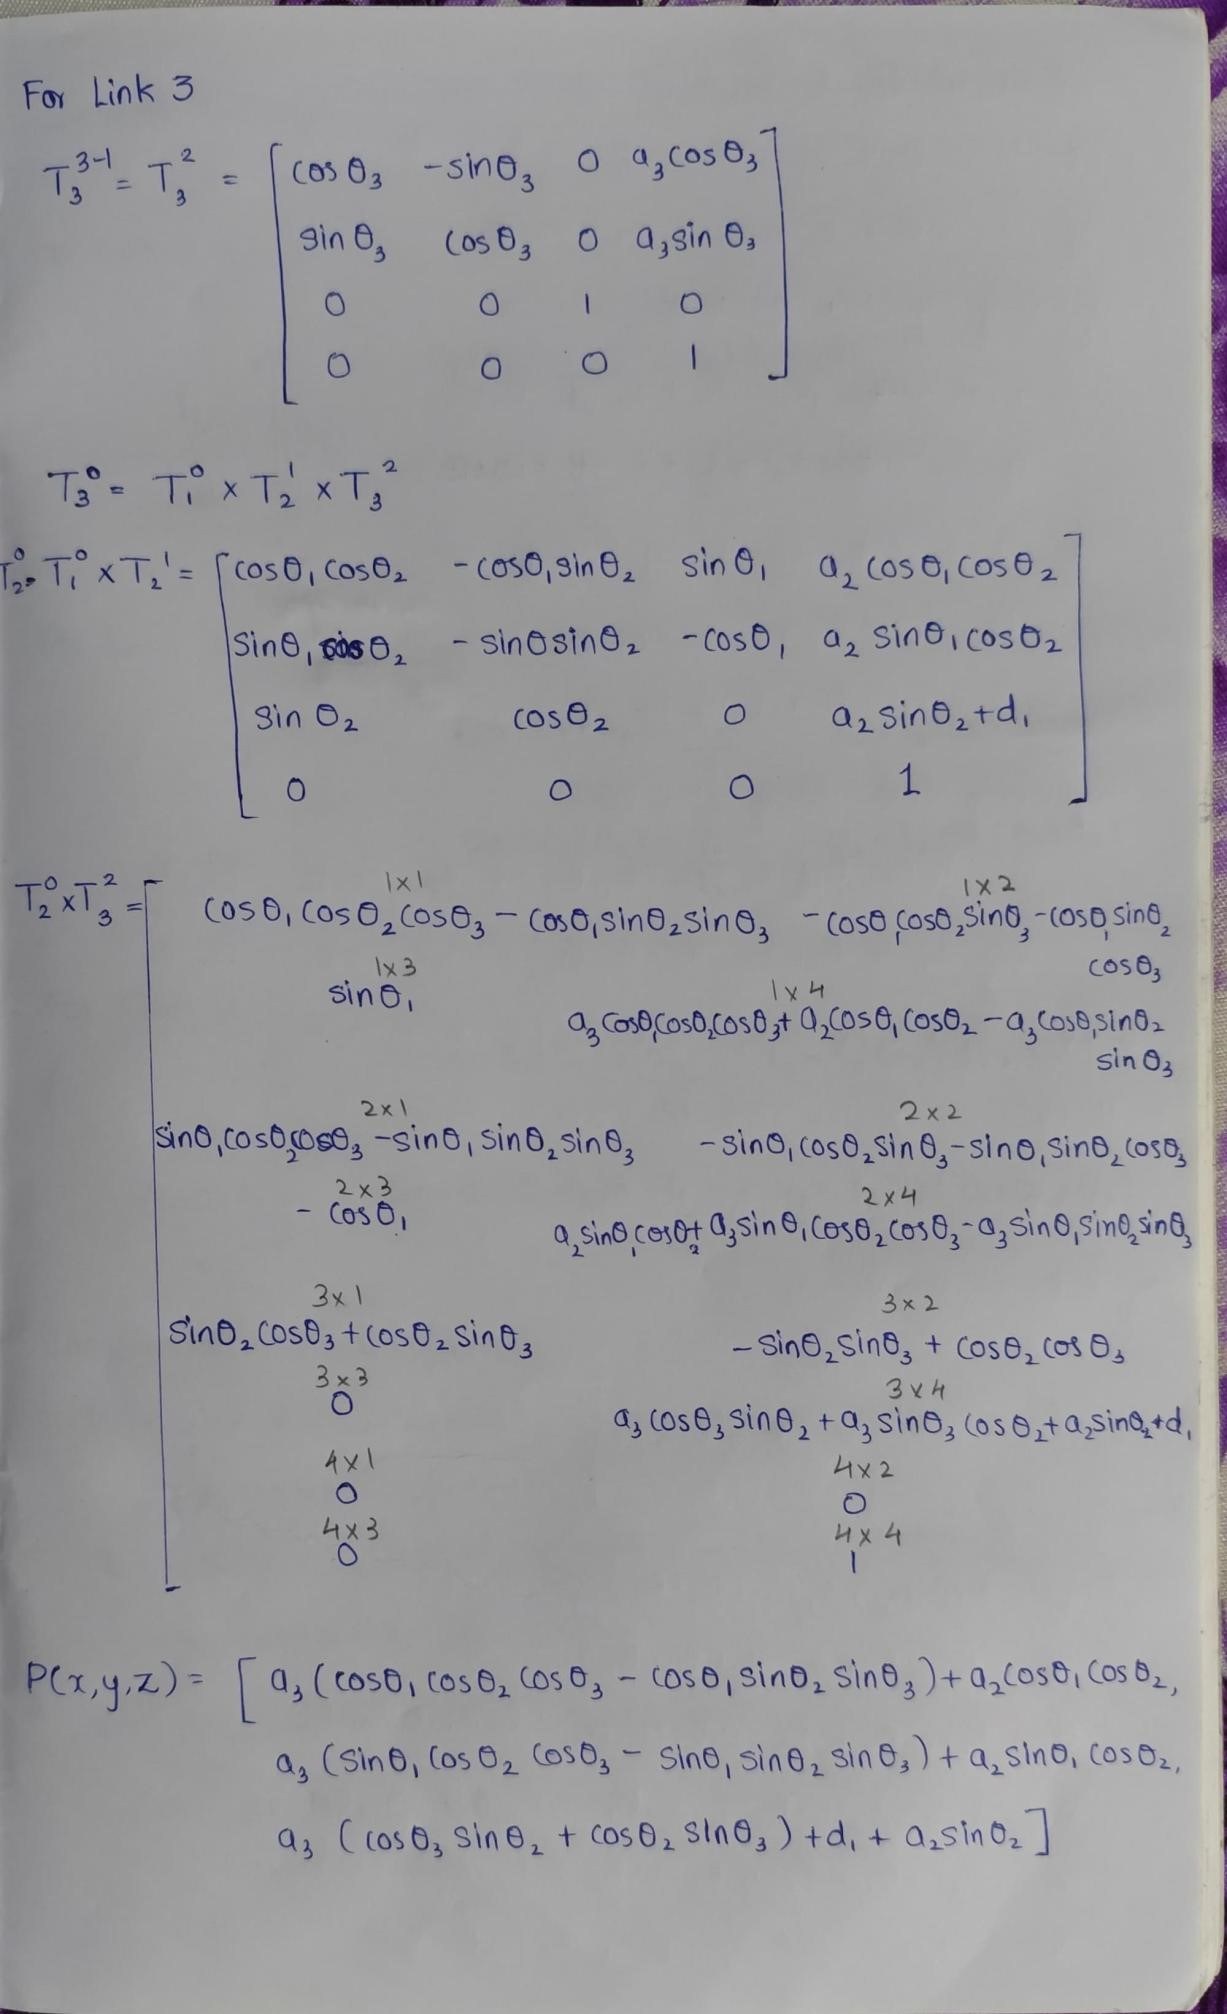 For Link 3
T₃³⁻¹ = T₃² = [ cosθ₃ -sinθ₃ 0 a₃cosθ₃
sinθ₃ cosθ₃ 0 a₃sinθ₃
0 0 1 0
0 0 0 1 ]
T₃⁰ = T₁⁰ × T₂¹ × T₃²
T₂⁰ = T₁⁰ × T₂¹ = [ cosθ₁cosθ₂ -cosθ₁sinθ₂ sinθ₁ a₂cosθ₁cosθ₂
sinθ₁cosθ₂ -sinθsinθ₂ -cosθ₁ a₂ sinθ₁cosθ₂
sinθ₂ cosθ₂ 0 a₂sinθ₂+d₁
0 0 0 1 ]
1×1 1×2
T₂⁰×T₃² = [ cosθ₁cosθ₂cosθ₃ - cosθ₁sinθ₂sinθ₃ -cosθ₁cosθ₂sinθ₃-cosθ₁sinθ₂
cosθ₃
1×3 1×4
sinθ₁ a₃cosθ₁cosθ₂cosθ₃+a₂cosθ₁cosθ₂-a₃cosθ₁sinθ₂
sinθ₃
2×1 2×2
sinθ₁cosθ₂cosθ₃ -sinθ₁sinθ₂sinθ₃ -sinθ₁cosθ₂sinθ₃-sinθ₁sinθ₂cosθ₃
2×3 2×4
-cosθ₁ a₂sinθ₁cosθ₂+a₃sinθ₁cosθ₂cosθ₃-a₃sinθ₁sinθ₂sinθ₃
3×1 3×2
sinθ₂cosθ₃+cosθ₂sinθ₃ -sinθ₂sinθ₃ + cosθ₂cosθ₃
3×3 3×4
0 a₃cosθ₃sinθ₂+a₃sinθ₃cosθ₂+a₂sinθ₂+d₁
4×1 4×2
0 0
4×3 4×4
0 1
P(x,y,z) = [ a₃(cosθ₁cosθ₂cosθ₃ - cosθ₁sinθ₂sinθ₃)+a₂cosθ₁cosθ₂,
a₃(sinθ₁cosθ₂cosθ₃ - sinθ₁sinθ₂sinθ₃)+a₂sinθ₁cosθ₂,
a₃(cosθ₃sinθ₂ + cosθ₂sinθ₃)+d₁+a₂sinθ₂]